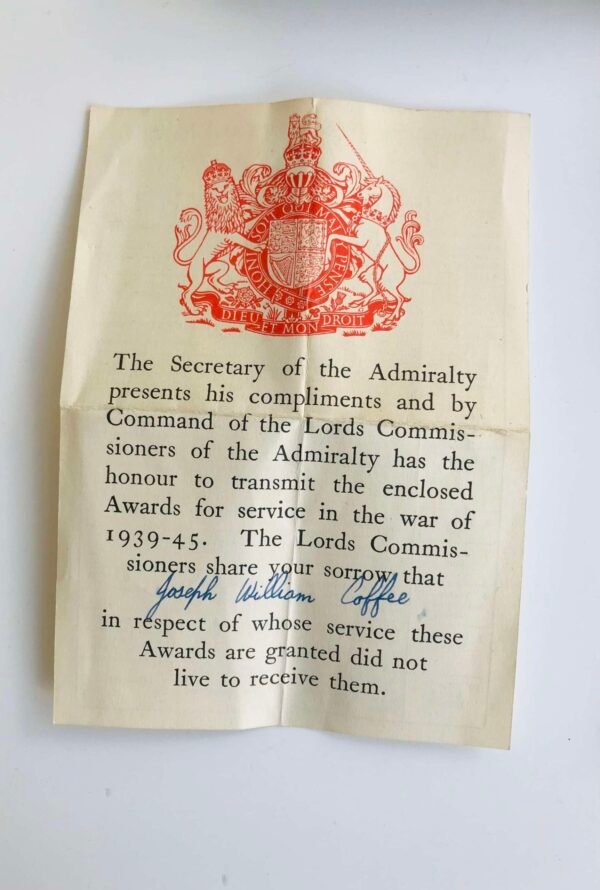 HONI SOIT QUI MAL Y PENSE
DIEU ET MON DROIT
The Secretary of the Admiralty
presents his compliments and by
Command of the Lords Commis-
sioners of the Admiralty has the
honour to transmit the enclosed
Awards for service in the war of
1939-45. The Lords Commis-
sioners share your sorrow that
Joseph William Coffee
in respect of whose service these
Awards are granted did not
live to receive them.